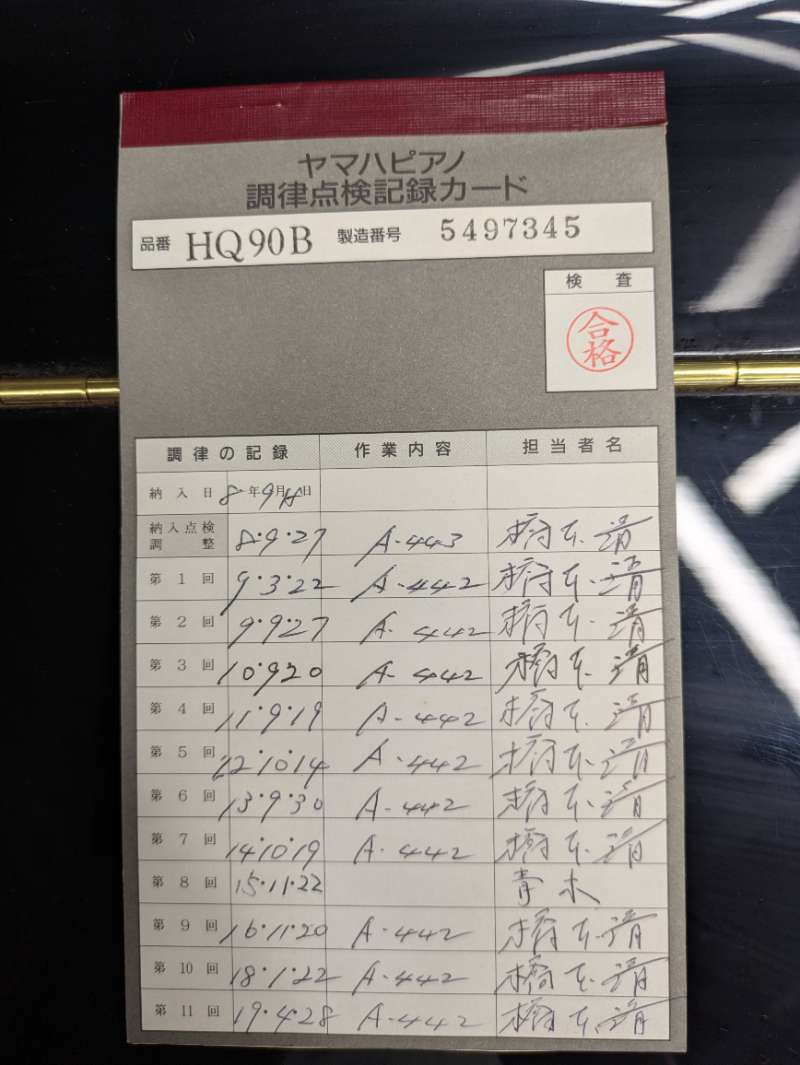 ヤマハピアノ
調律点検記録カード
品番 HQ90B 製造番号 5497345
検査
合格
調律の記録 作業内容 担当者名
納入日 8年9月 日
納入点検調整 8・9・27 A-443 橋本 清
第1回 9・3・22 A-442 橋本 清
第2回 9・9・27 A-442 橋本 清
第3回 10・9・20 A-442 橋本 清
第4回 11・9・19 A-442 橋本 清
第5回 12・10・14 A-442 橋本 清
第6回 13・9・30 A-442 橋本 清
第7回 14・10・19 A-442 橋本 清
第8回 15・11・22 青木
第9回 16・11・20 A-442 橋本 清
第10回 18・1・22 A-442 橋本 清
第11回 19・4・28 A-442 橋本 清